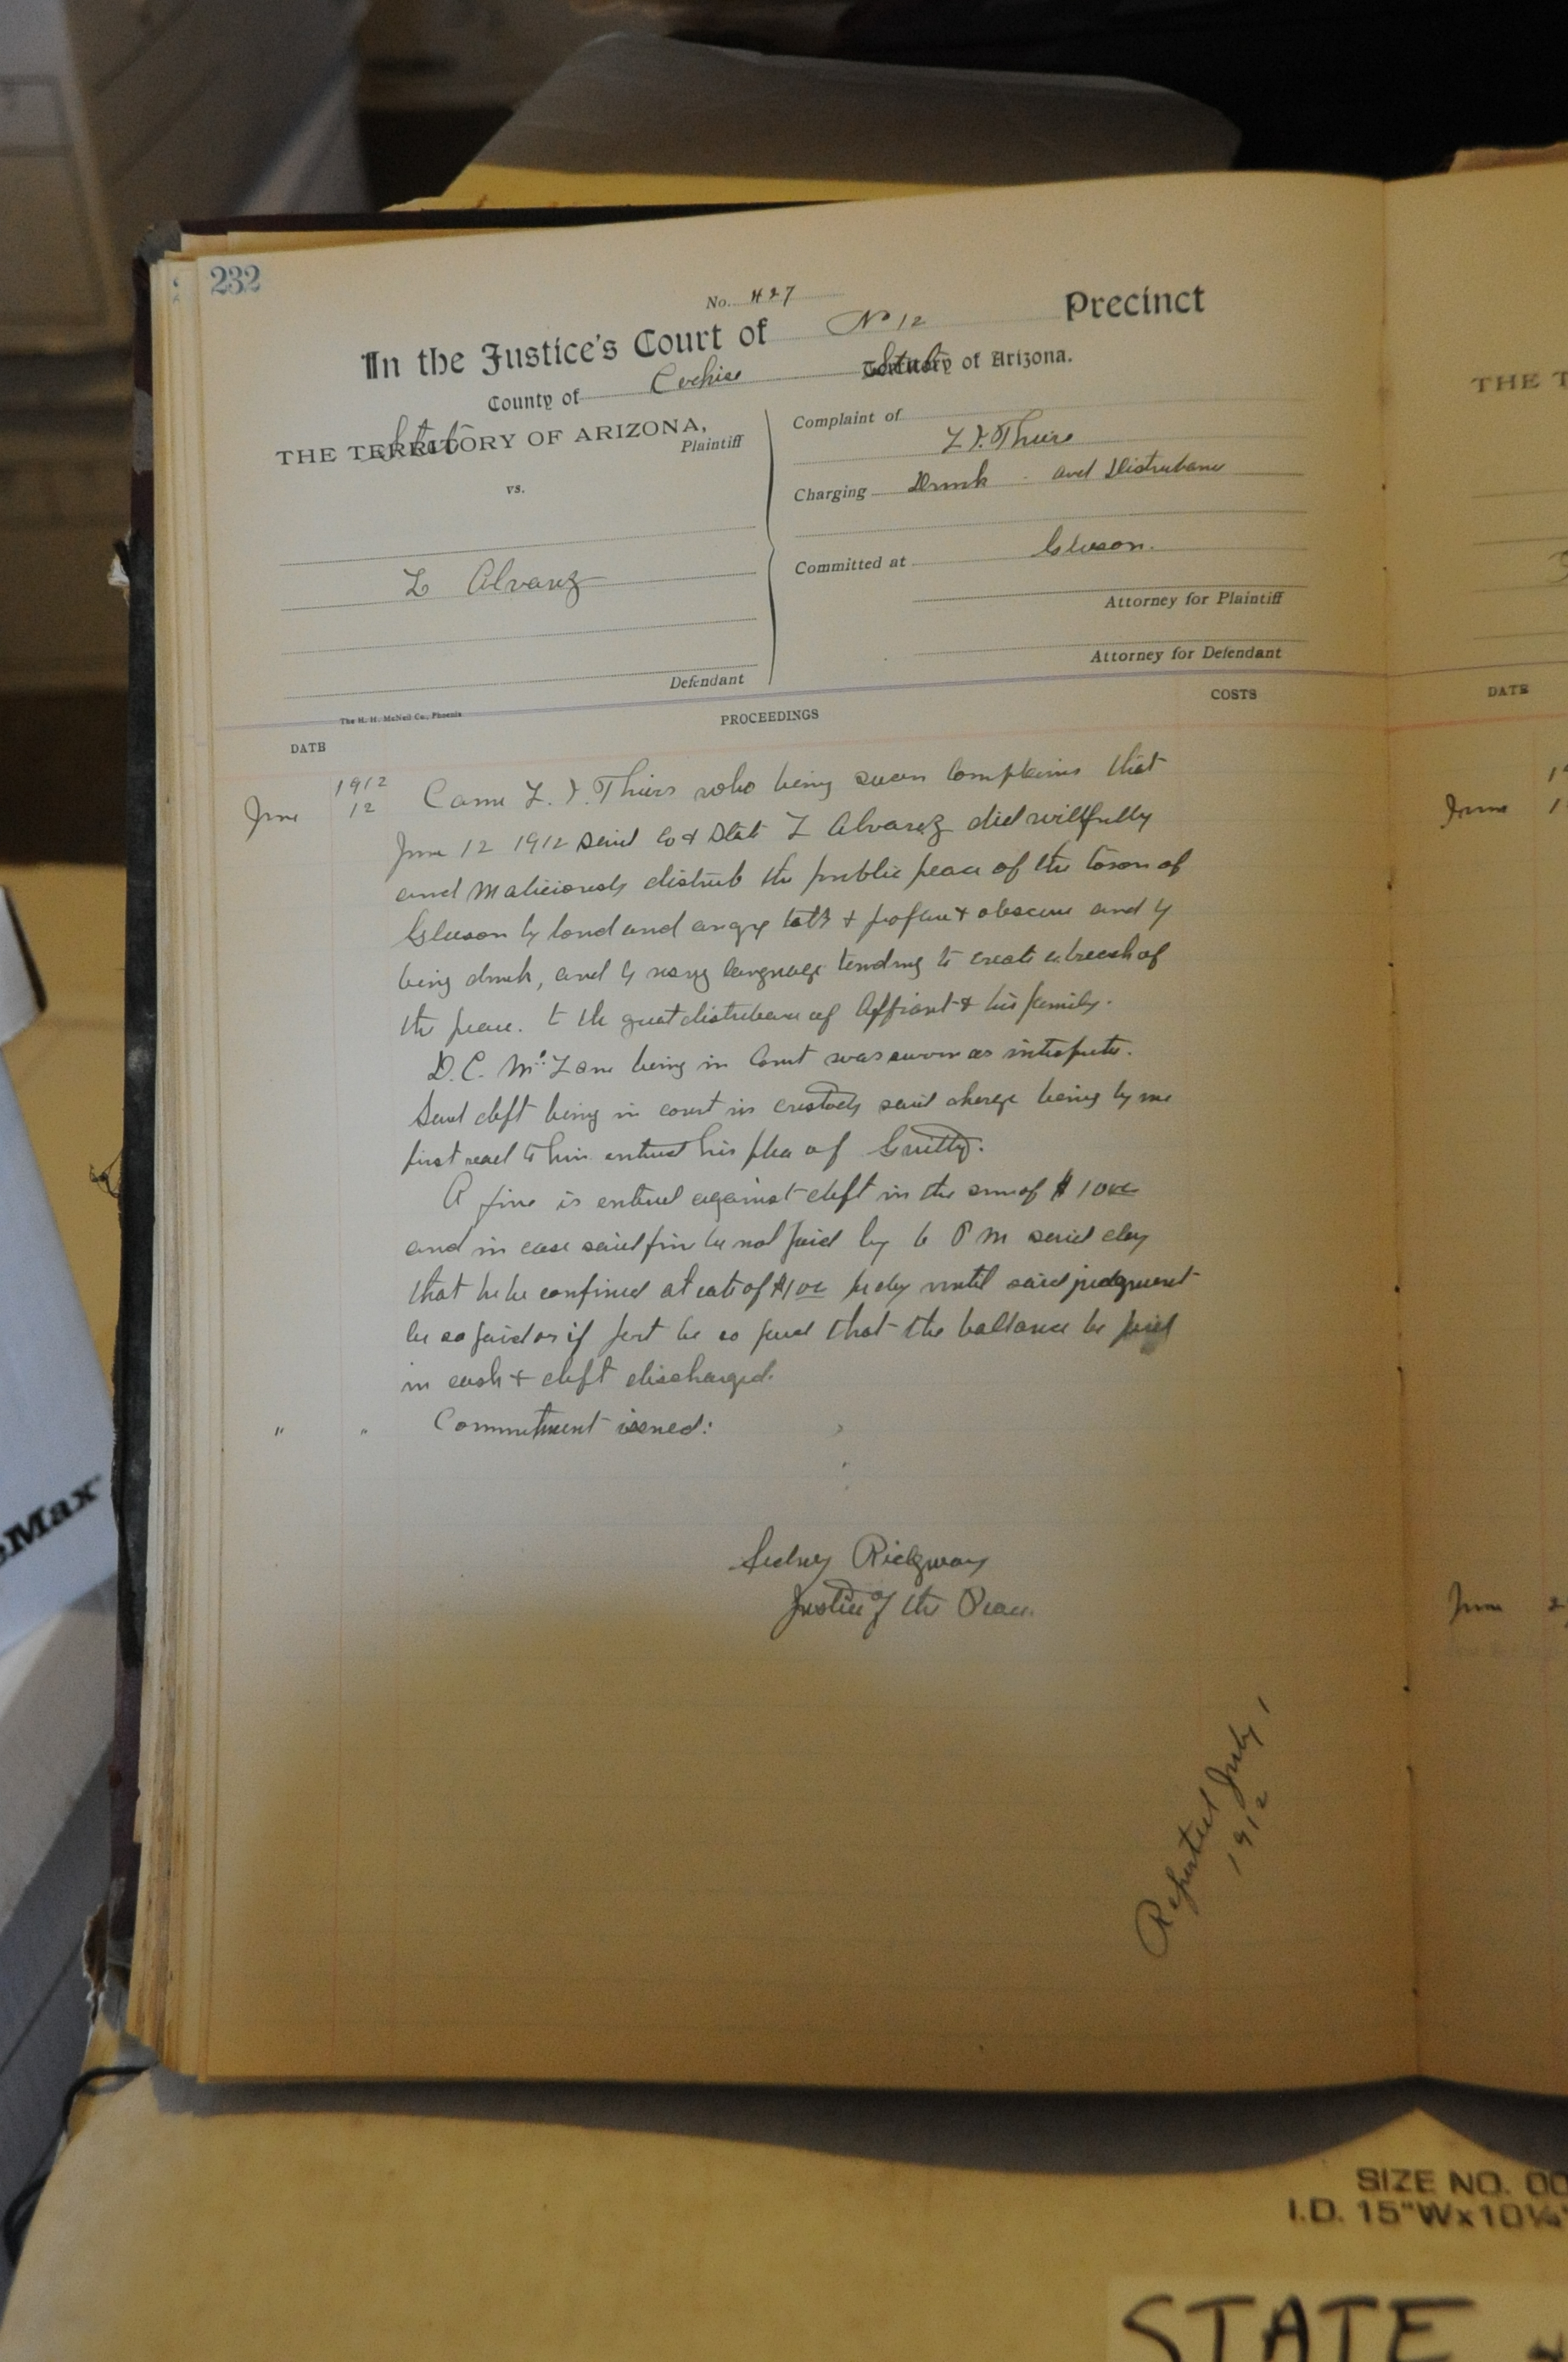 232
No. 427
In the Justice's Court of No 12 Precinct
County of Cochise State Territory of Arizona.
State
THE TERRITORY OF ARIZONA,
Plaintiff
vs.
L Alvarez
Defendant
Complaint of
L. J. Thiers
Charging Drunk and Distrubance
Committed at Gleason.
Attorney for Plaintiff
Attorney for Defendant
The H. H. McNeil Co., Phoenix
DATE PROCEEDINGS COSTS
1912
June 12 Came L. J. Thiers who being sworn complains that
June 12 1912 said Co & State L Alvarez did willfully
and Maliciously distrub the public peace of the town of
Gleeson by loud and angry talk & profane & obscene and by
being drunk, and by using language tending to create a breech of
the peace. to the great distrubance of Affiant & his family.
D. C. Mc Lane being in Court was sworn as interpreter.
Said deft being in court in custody said charge being by me
first read to him entered his plea of Guilty.
A fine is entered against deft in the sum of $10 00
and in case said fine be not paid by 6 P M said day
that he be confined at rate of $1 00 per day until said judgment
be so paid or if part be so paid that the ballance be paid
in cash & deft discharged.
" " Commitment issued:
Sidney Ridgway
Justice of the Peace.
Reported July 1
1912
THE T
DATE
June
June 2
eMax
SIZE NO. 00
I.D. 15"Wx10¼"
STATE